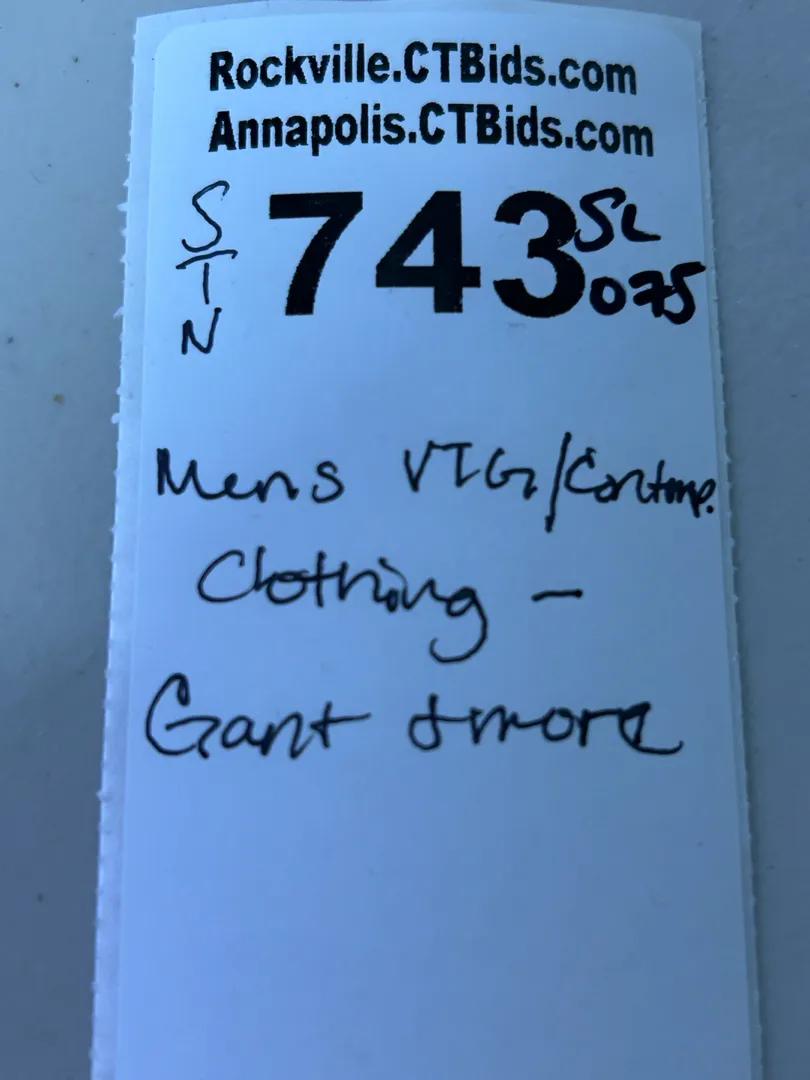 Rockville.CTBids.com
Annapolis.CTBids.com
S
T
N
743
SL
075
Mens VTG/Contmp.
Clothing -
Gant & more